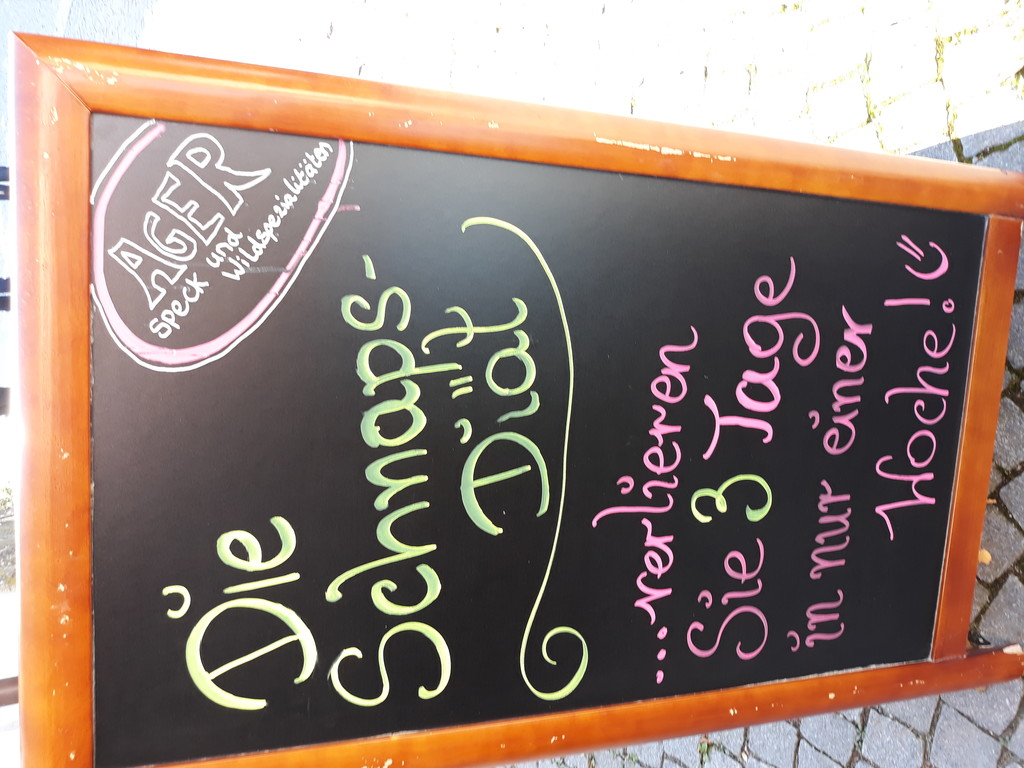 AGER
Speck und
Wildspezialitäten
Die
Schnaps-
Diät
...verlieren
Sie 3 Tage
in nur einer
Woche! :)